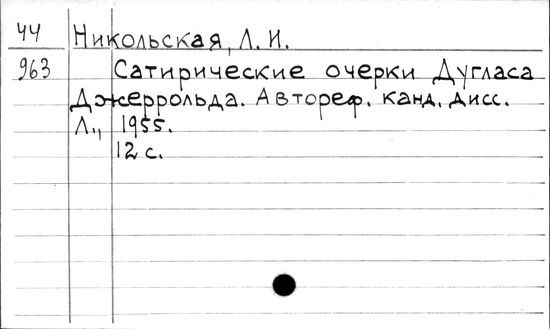 44 Никольская, Л. И.
963 Сатирические очерки Дугласа
Джеррольда. Автореф. канд. дисс.
Л., 1955.
12 с.